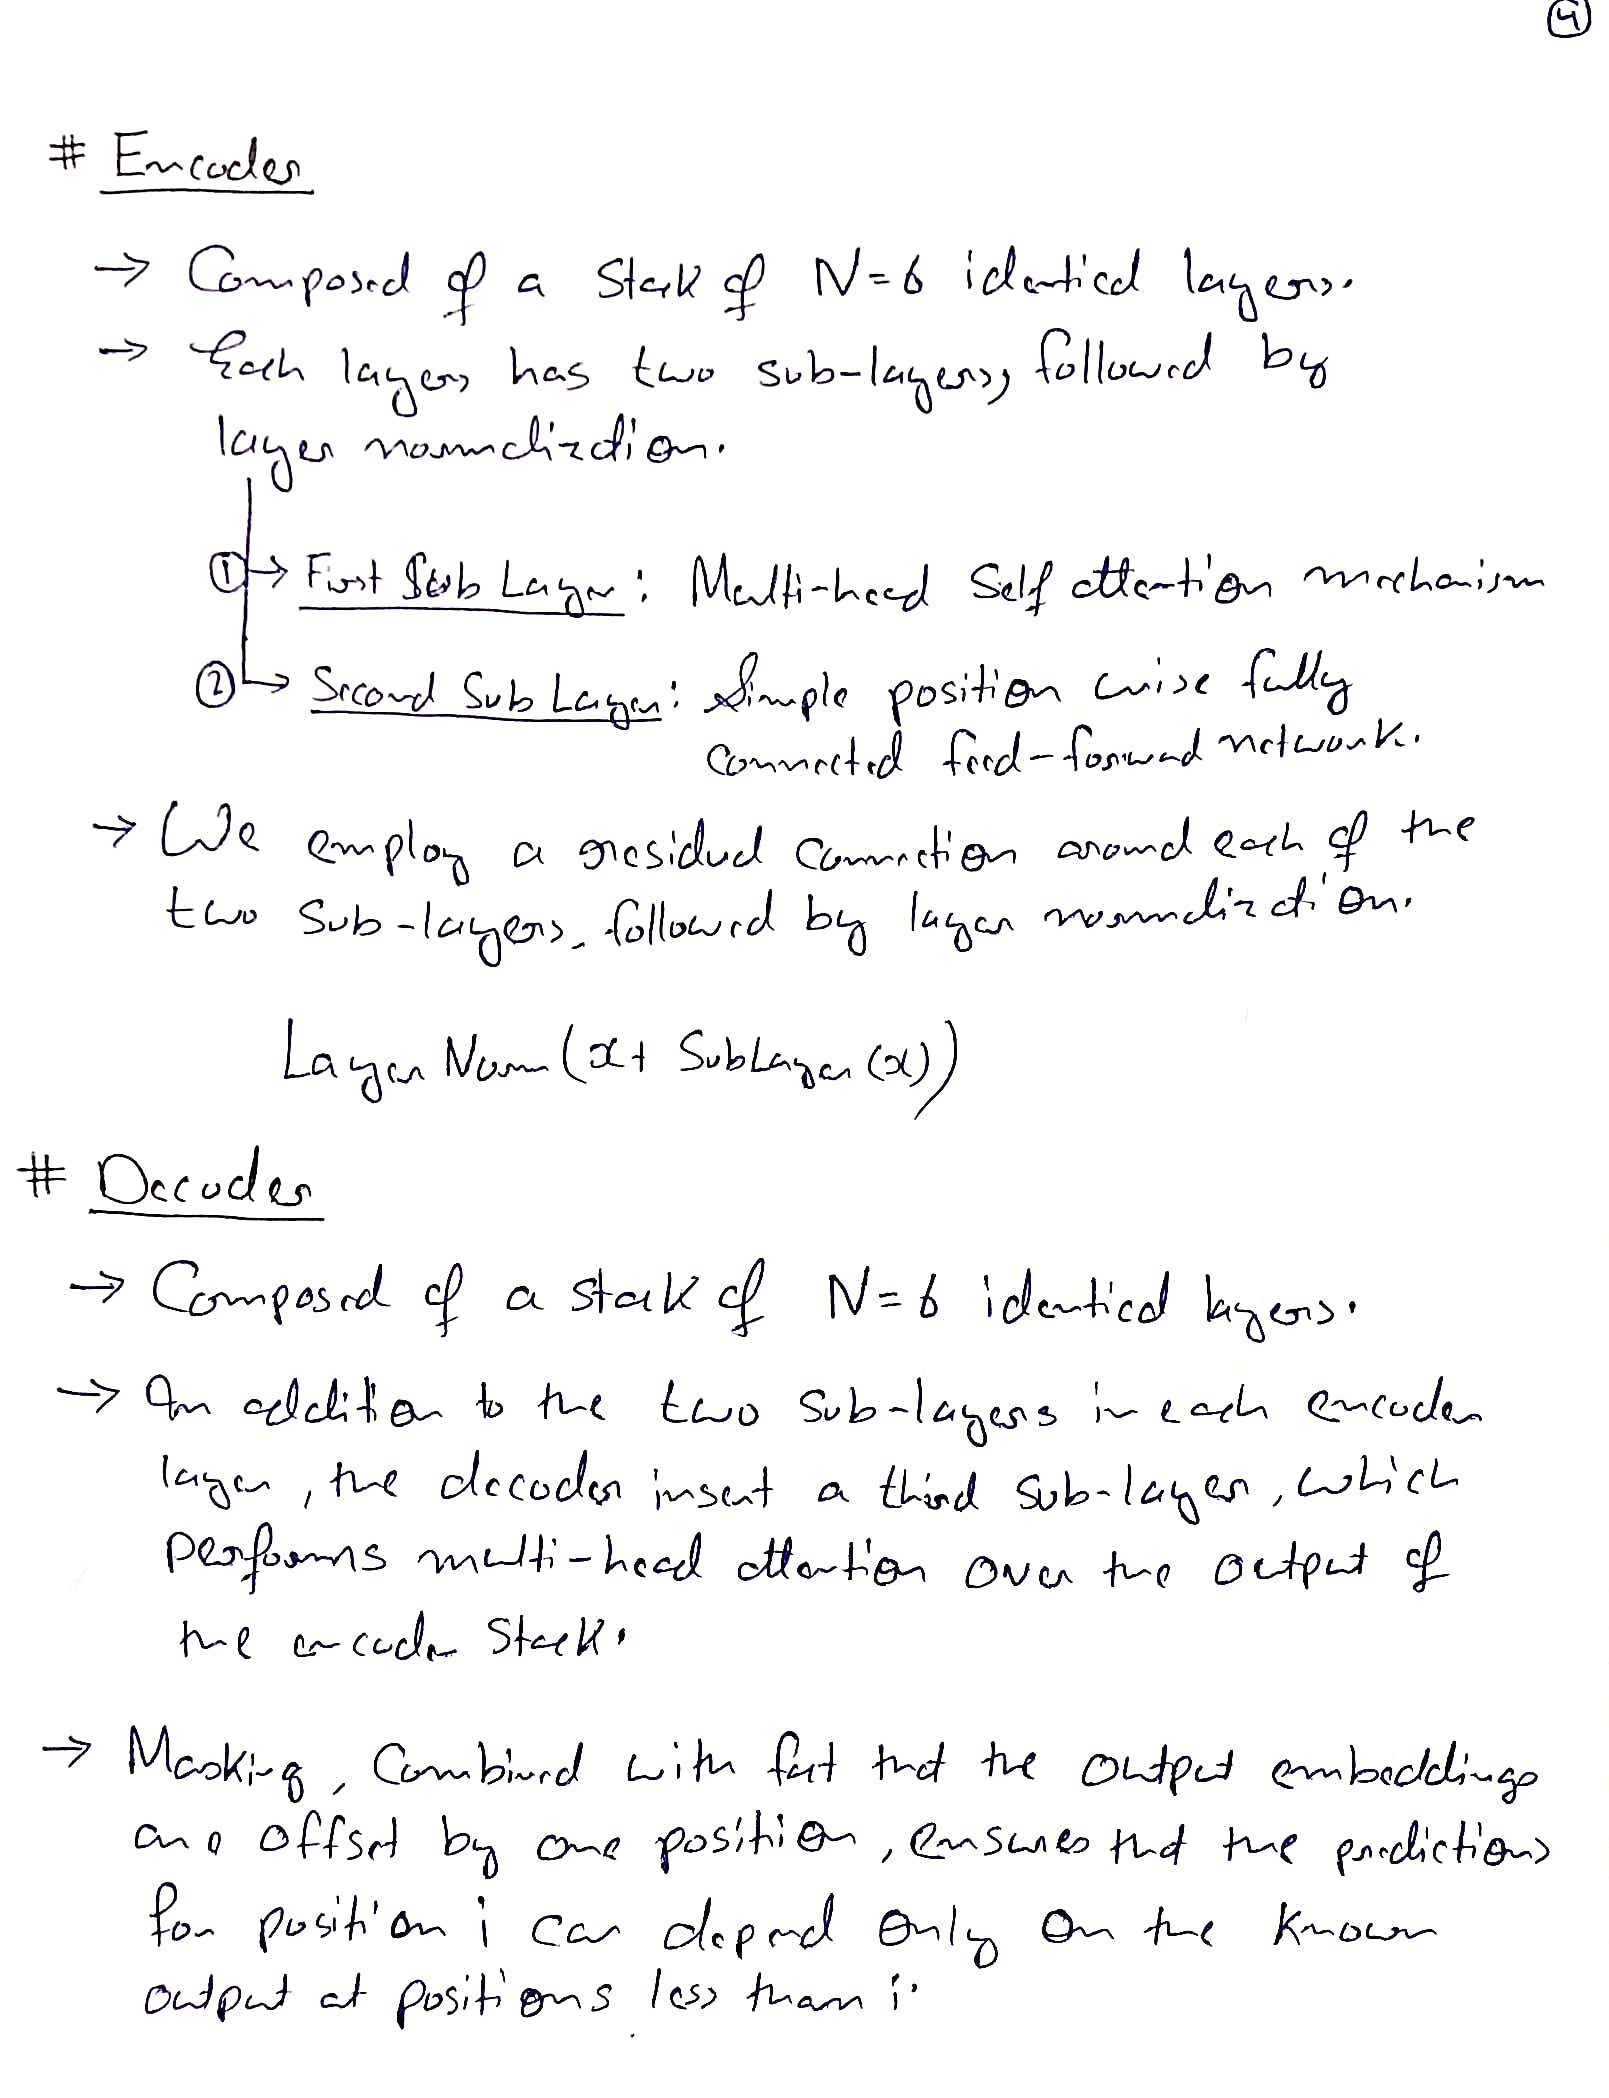 4
# Encoder
→ Composed of a Stack of N=6 identical layers.
→ Each layers has two sub-layers, followed by
layer normalization.
① → First Sub Layer : Multi-head Self attention mechanism
② → Second Sub Layer : Simple position wise fully
connected feed-forward network.
→ We employ a residual connection around each of the
two Sub-layers, followed by layer normalization.
Layer Norm (x + SubLayer (x))
# Decoder
→ Composed of a stack of N=6 identical layers.
→ In addition to the two sub-layers in each encoder
layer, the decoder insert a third sub-layer, which
performs multi-head attention over the output of
the encoder stack.
→ Masking, Combined with fact that the output embeddings
are offset by one position, ensures that the predictions
for position i can depend only on the known
output at positions less than i.